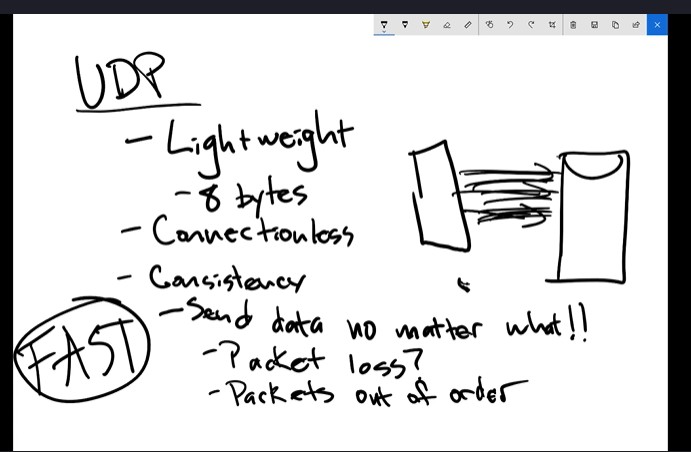 UDP
- Lightweight
- 8 bytes
- Connectionless
- Consistency
- Send data no matter what!!
FAST
- Packet loss?
- Packets out of order